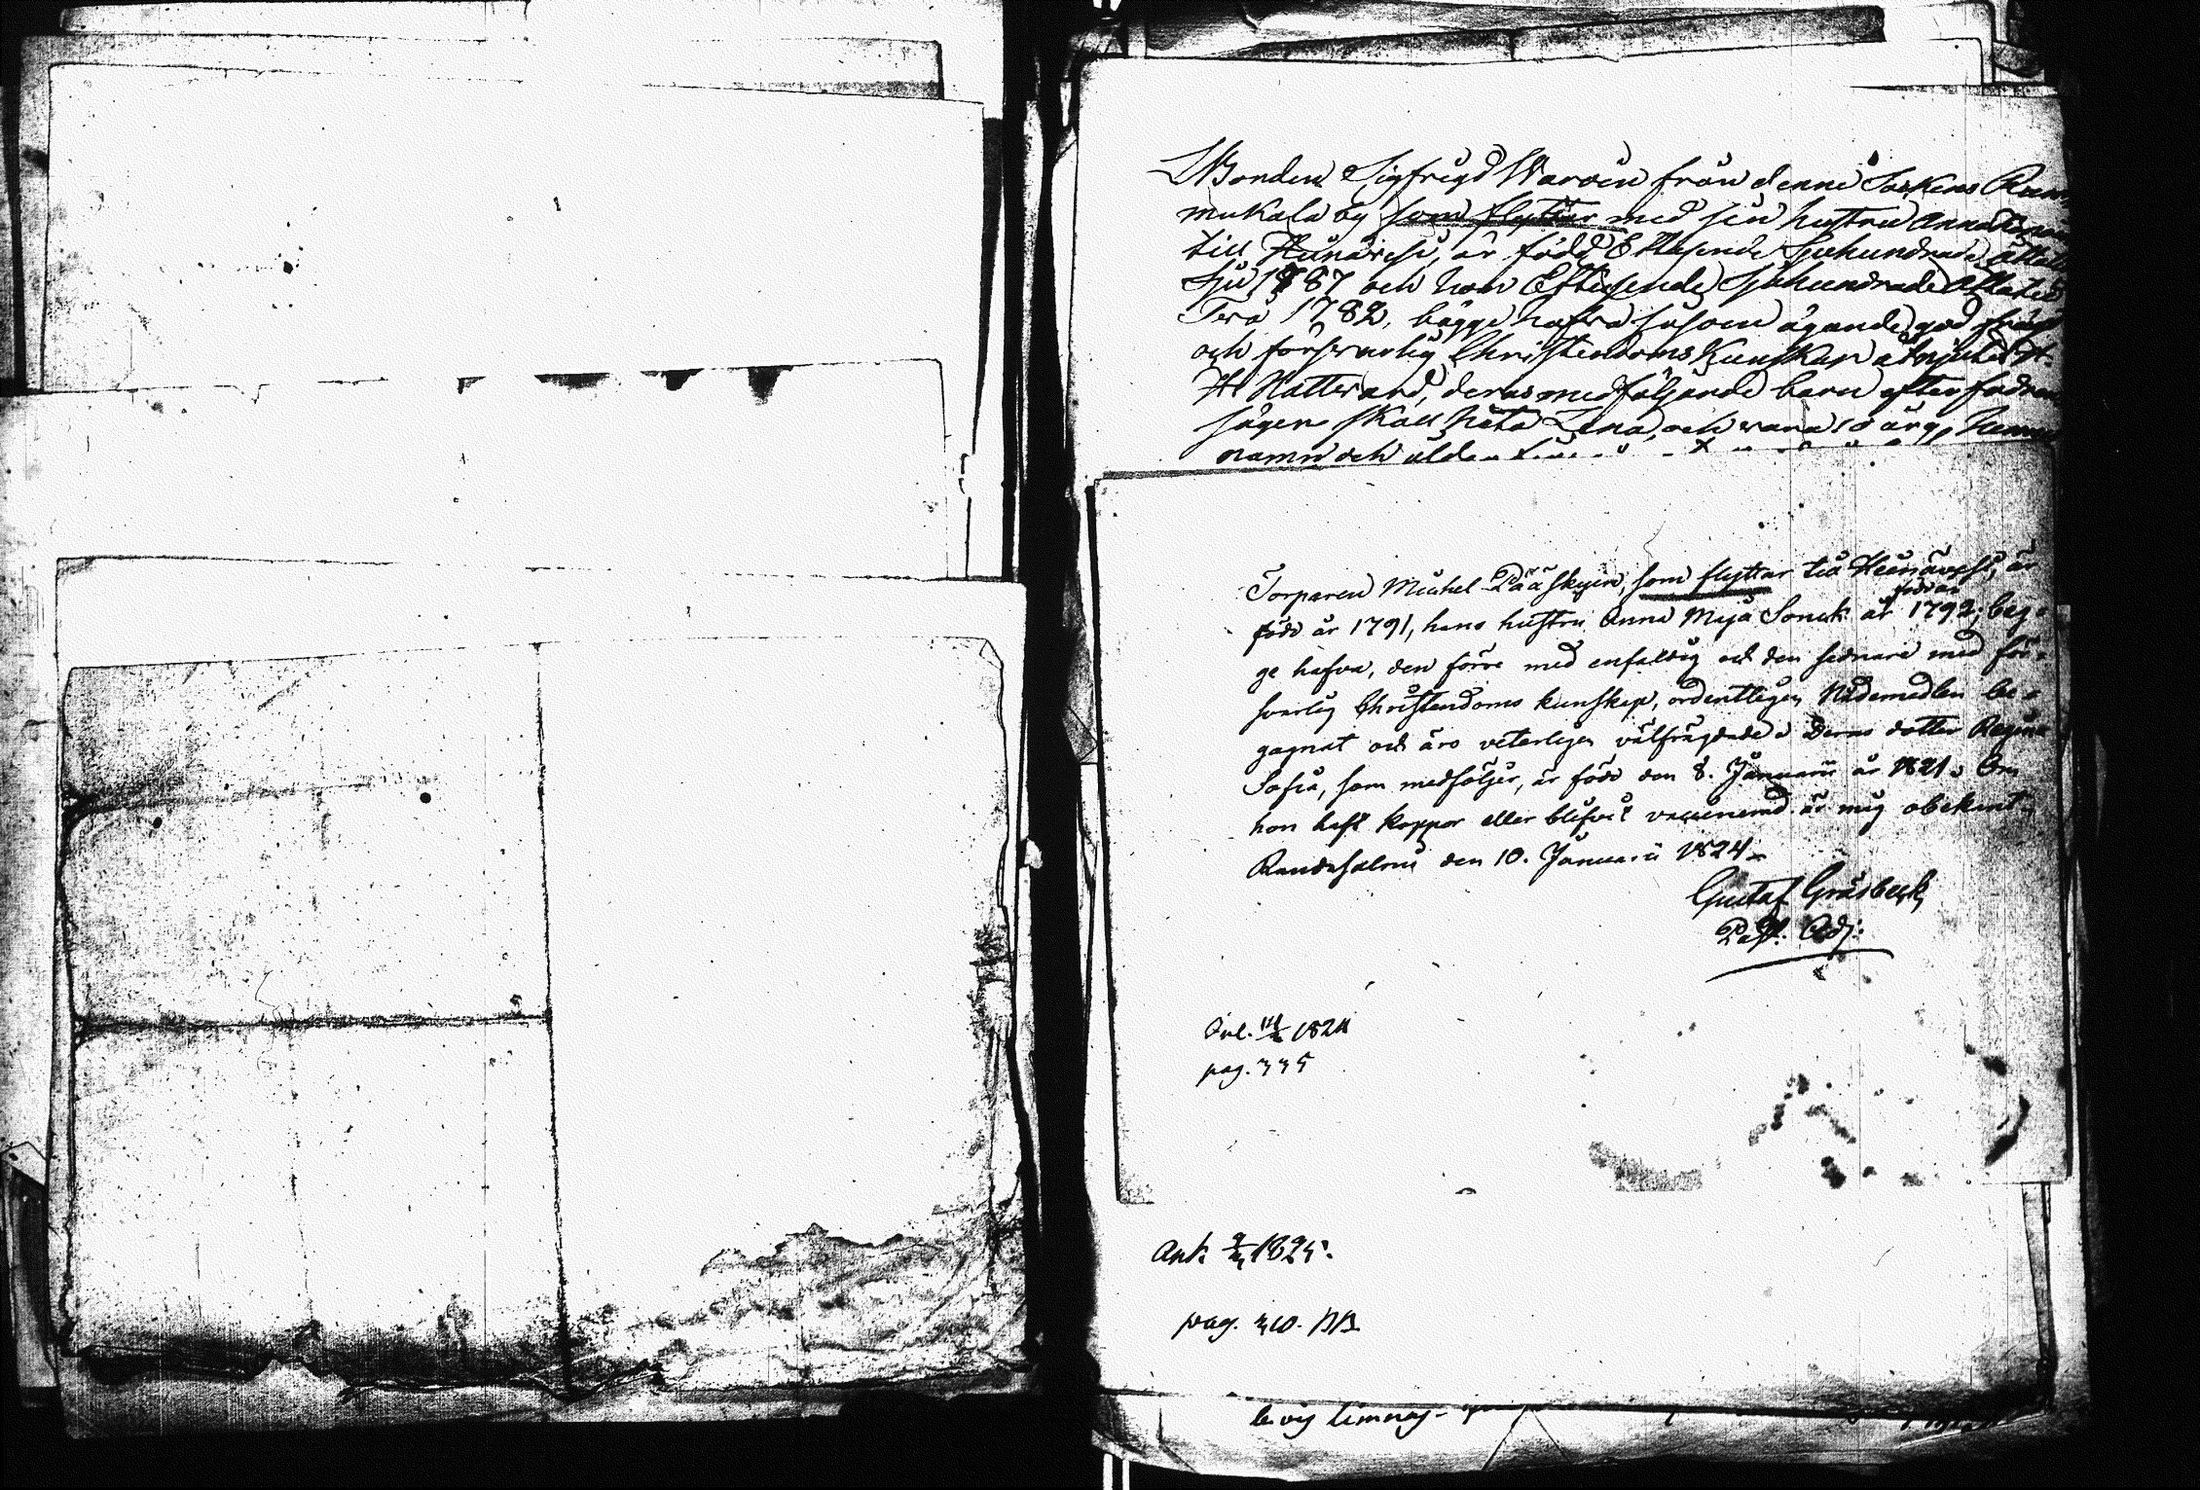 Bonden Sigfrid Waroin från denne Sockens Ram
mukala by som flyttar med sin hustru Anna
till Heinävesi, är född Ettusende Sjuhundrade åttati
Sju 1787 och hon Ettusende Sjuhundrade Åttatio
Två 1782, bägge hafva såsom ägande god fräjd
och försvarlig Christendoms Kunskap åtnjutit
H Nattvard, deras medföljande barn efter fadrens
sägen skall heta Lena, och vara 10 år,
namn och ålder
Torparen Michel Pääskyin, som flyttar till Heinävesi, är
född år 1791, hans hustru Anna Maja Sonck är född år 1792; beg=
ge hafva, den förre med enfaldig och den sednare med för=
svarlig Christendoms kunskap, ordentligen Nådemedlen be=
gagnat och äro veterligen välfrägdade. Deras dotter Regina
Sofia, som medföljer, är född den 8. Januarii år 1821. Om
hon haft koppor eller blifvit vaccinerad är mig obekant.
Randasalmi den 10. Januarii 1824.
Gustaf Gråsbeck
Past. Adj:
1824
pag. 335
Ank 1825.
pag. 310.